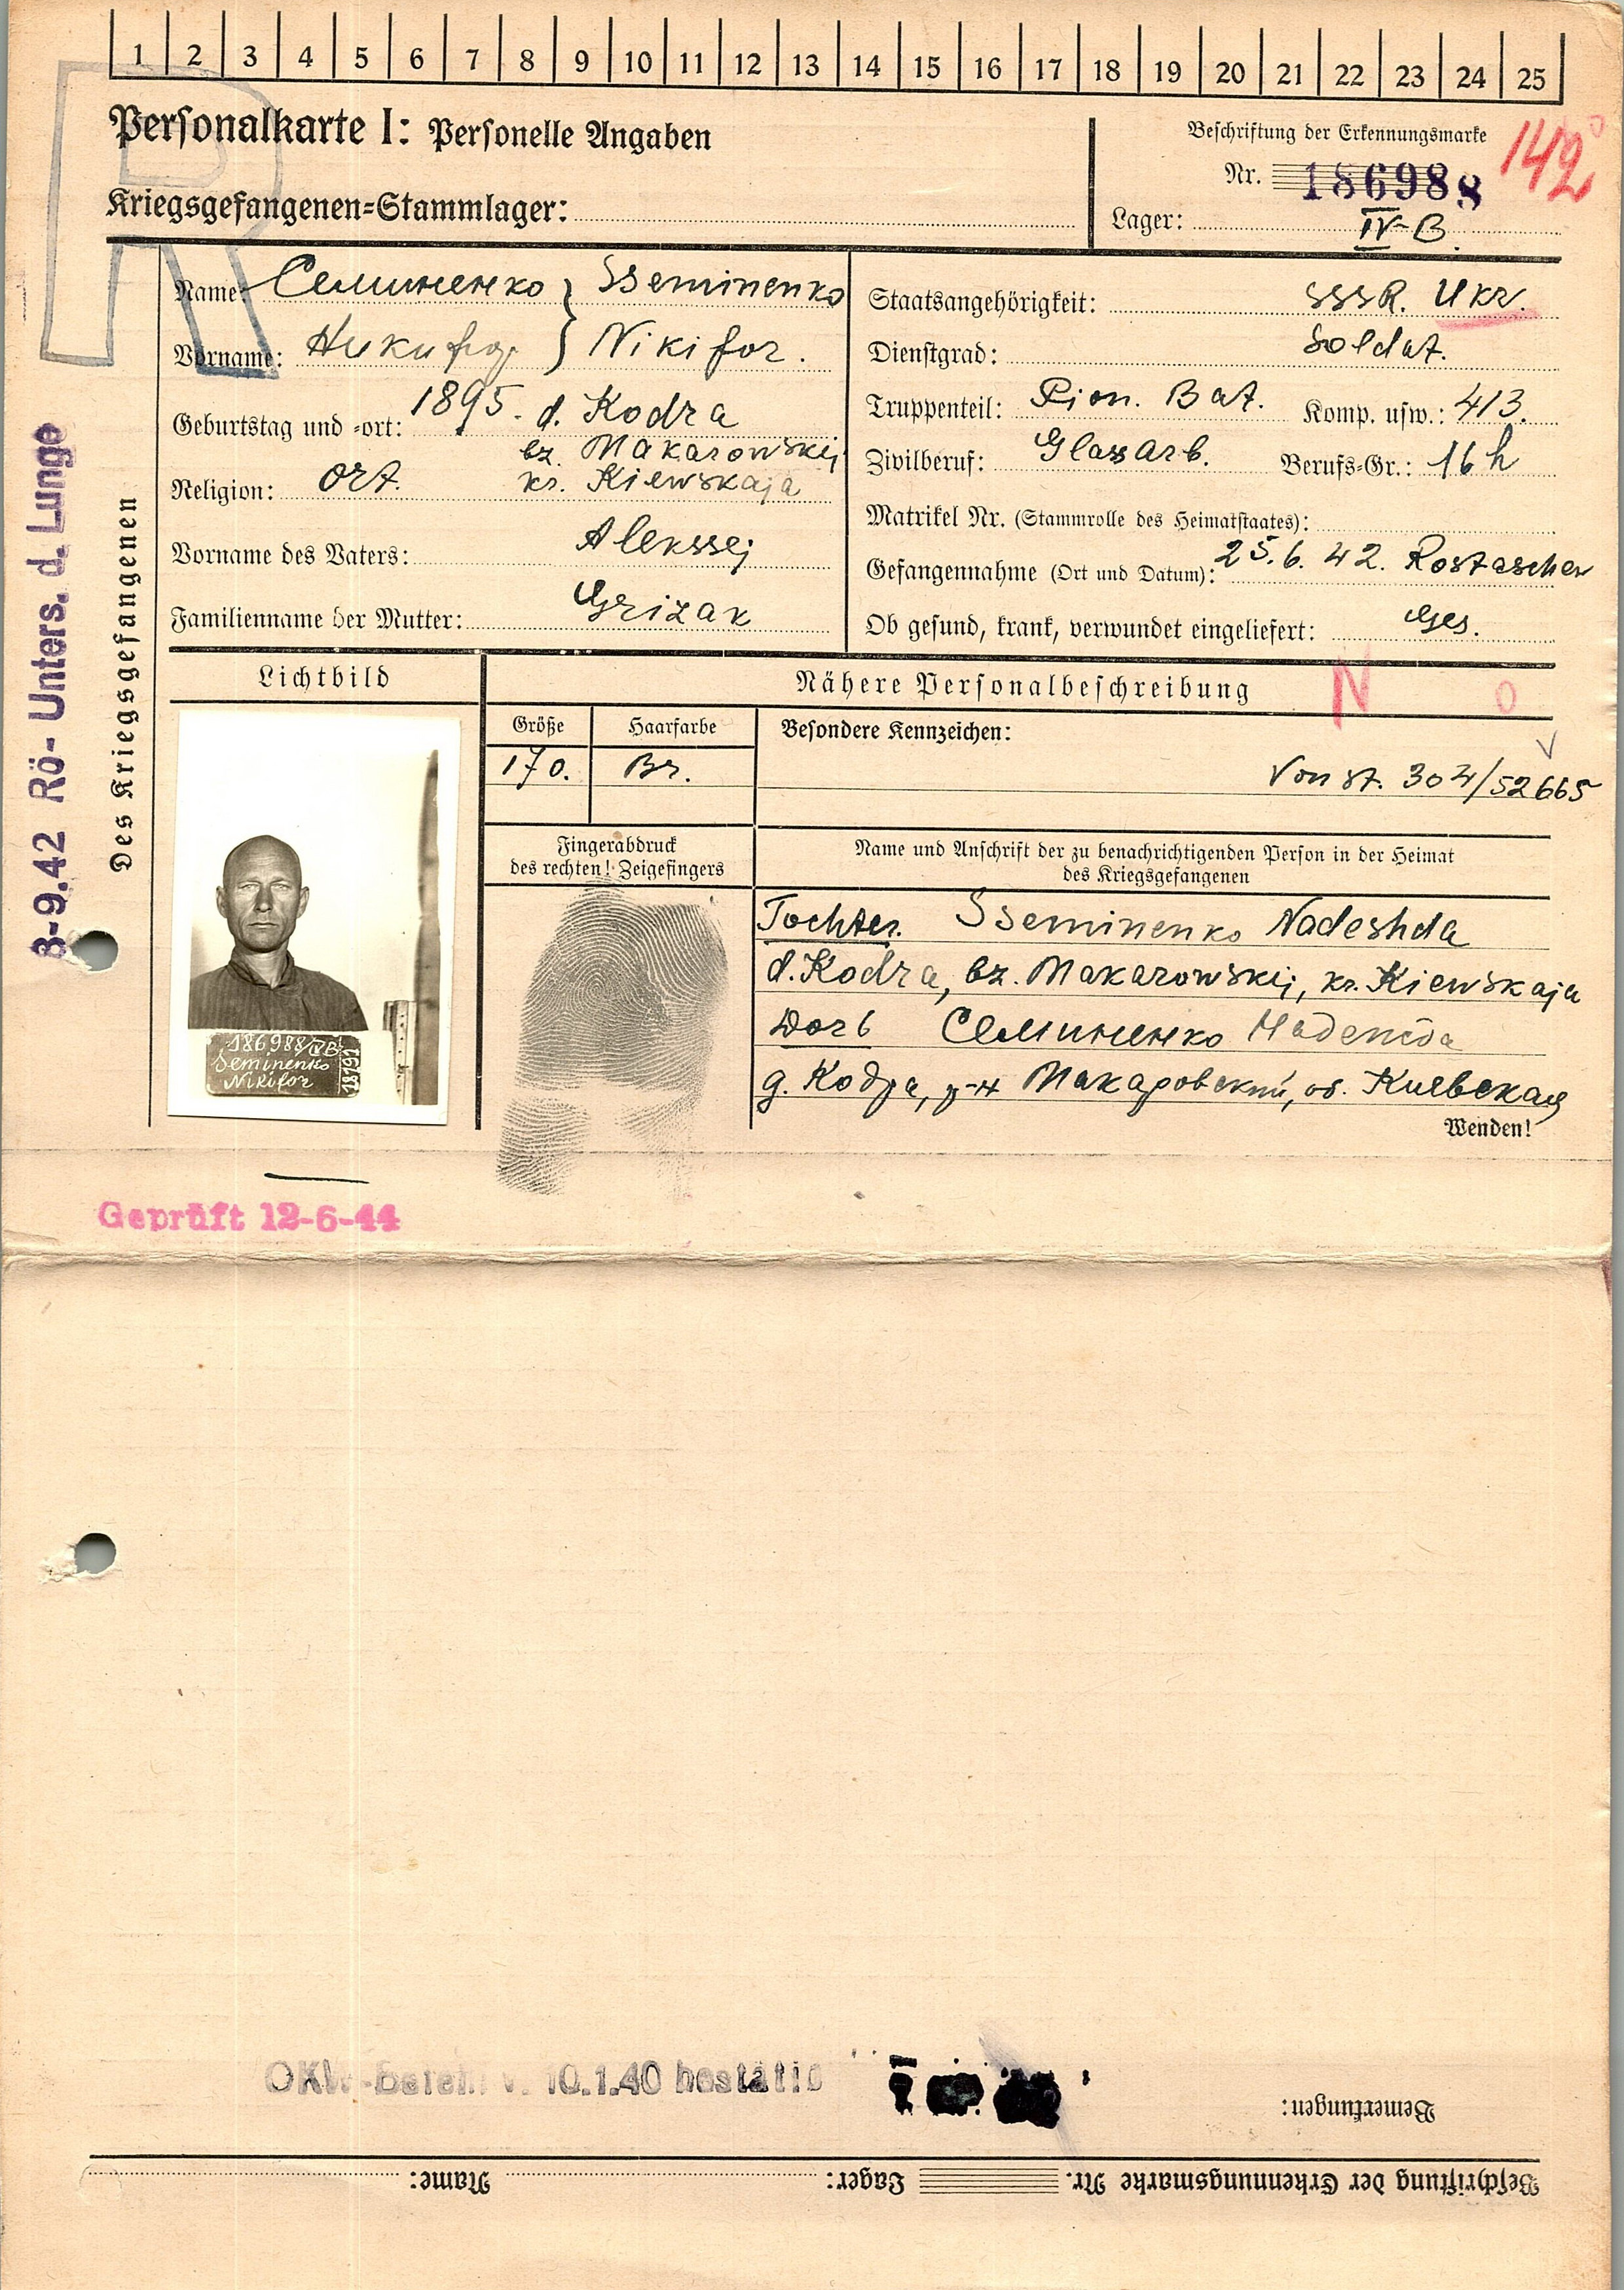 1 2 3 4 5 6 7 8 9 10 11 12 13 14 15 16 17 18 19 20 21 22 23 24 25
Personalkarte I: Personelle Angaben
Beschriftung der Erkennungsmarke
142
Nr. 186988
Kriegsgefangenen-Stammlager:
Lager: IV-B.
Name: Семиненко } Sseminenko
Vorname: Никифор } Nikifor.
Geburtstag und -ort: 1895. d. Kodra
bz. Makarowskij
Religion: Ort. kr. Kiewskaja
Vorname des Vaters: Alekssej
Familienname der Mutter: Grizak
Staatsangehörigkeit: SSSR. Ukr.
Dienstgrad: Soldat.
Truppenteil: Pion. Bat. Komp. usw.: 413.
Zivilberuf: Glasarb. Berufs-Gr.: 16h
Matrikel Nr. (Stammrolle des Heimatstaates):
Gefangennahme (Ort und Datum): 25.6.42. Rostaschew
Ob gesund, krank, verwundet eingeliefert: Ges.
Des Kriegsgefangenen
8-9.42 Rö- Unters. d. Lunge
Lichtbild
Nähere Personalbeschreibung
N O
Größe
Haarfarbe
Besondere Kennzeichen:
170.
Br.
Von St. 304/52665
Fingerabdruck
des rechten! Zeigefingers
Name und Anschrift der zu benachrichtigenden Person in der Heimat
des Kriegsgefangenen
Tochter. Sseminenko Nadeshda
d. Kodra, bz. Makarowskij, kr. Kiewskaja
Dorf Семиненко
д. Кодра, р-н Макаровский, об. Киевская
Wenden!
186988/IVB
Seminenko
Nikifor
Geprüft 12-6-44
v. 10.1.40
Bemerkungen:
Beschriftung der Erkennungsmarke Nr. Lager: Name: